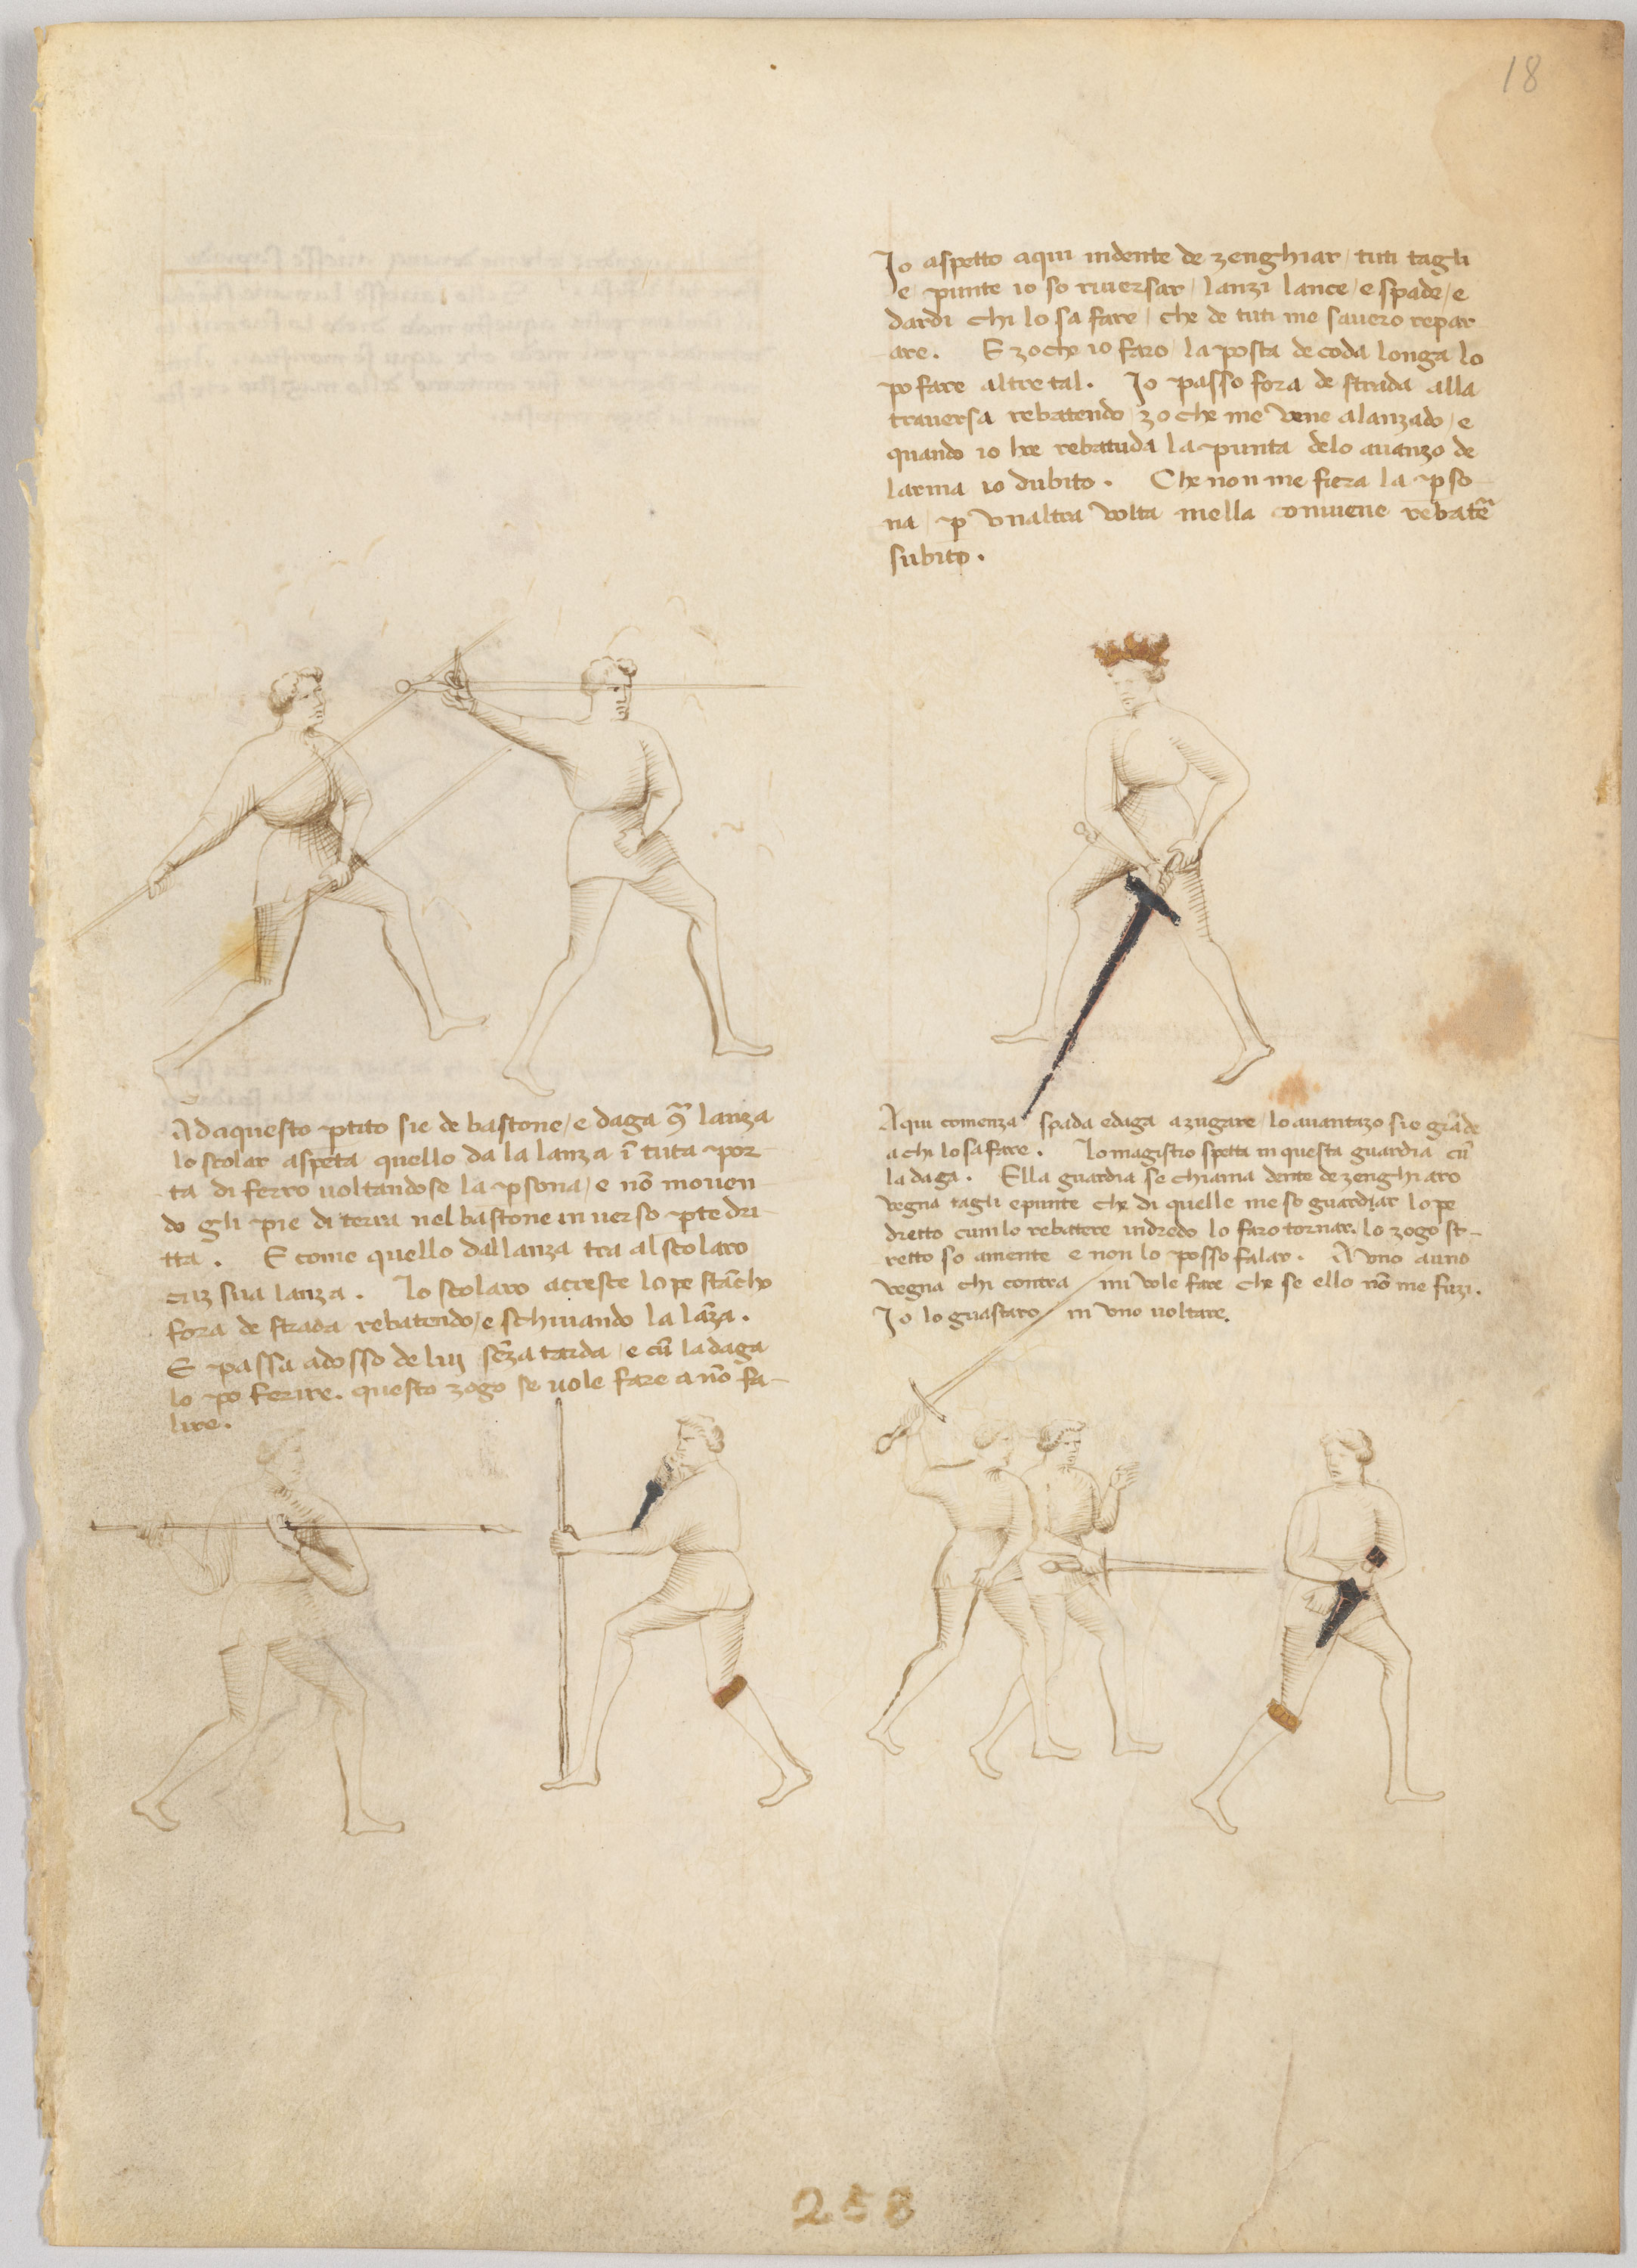 18
Io aspetto aqui indente de zenghiar / tuti tagli
e punte io so riversar / lanzi lance / e spade / e
dardi chi lo sa fare / che de tuti me savero repar
are. E zoche io faro la posta de coda longa lo
po fare altretal. Io passo fora de strada alla
traversa rebatendo zo che me vene alanzado / e
quando io he rebatuda la punta delo avanzo de
larma io dubito. Che non me fiera la pso
na / p unaltra volta mella convene rebate͂
subito.
Ad aquesto ptito sie de bastone / e daga ꝯ͂ lanza
lo scolar aspeta quello da la lanza ī tuta por
ta di ferro voltandose la psona / e nō moven
do gli pie di terra nel bastone in verso pte dri
tta. E come quello dallanza tra al scolaro
cuz sua lanza. Lo scolaro acresce lo pe stācho
fora de strada rebatendo / e schivando la lāza.
E passa adosso de luy sēza tarda / e cū la daga
lo po ferire. questo zogo se vole fare a nō fa-
lire.
Aqui comenza spada e daga a zugare / lo avantazo sie grāde
a chi lo sa fare. Lo magistro spetta in questa guardia cū
la daga. Ella guardia se chiama dente de zenghiaro
vegna tagli e punte che di quelle me so guardar lo pe
dretto cum lo rebatere indredo lo faro tornar. lo zogo st-
retto so amente e non lo posso falar. A uno a uno
vegna chi contra mi vole fare che se ello nō me fuzi.
Io lo guastaro in uno voltare.
258